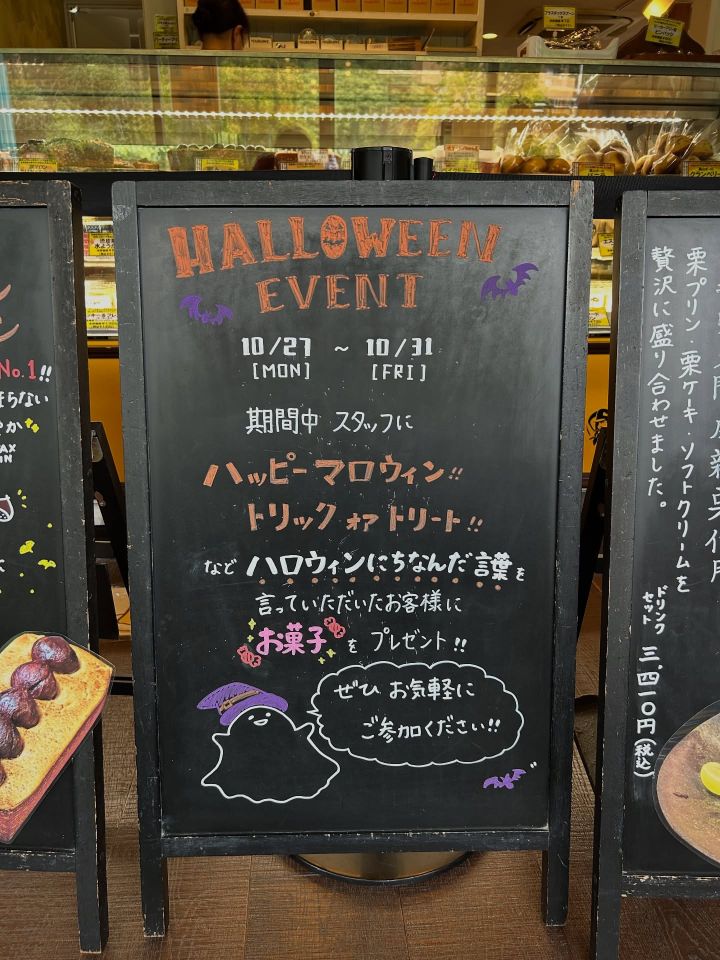 HALLOWEEN
EVENT
10/27 ~ 10/31
[MON] [FRI]
期間中 スタッフに
ハッピーマロウィン!!
トリック ォア トリート!!
など ハロウィンにちなんだ言葉を
言っていただいたお客様に
お菓子を プレゼント!!
ぜひ お気軽に
ご参加ください!!
No.1!!
栗プリン・栗ケーキ・ソフトクリームを
贅沢に盛り合わせました。
ドリンク
セット
三,四一〇円(税込)